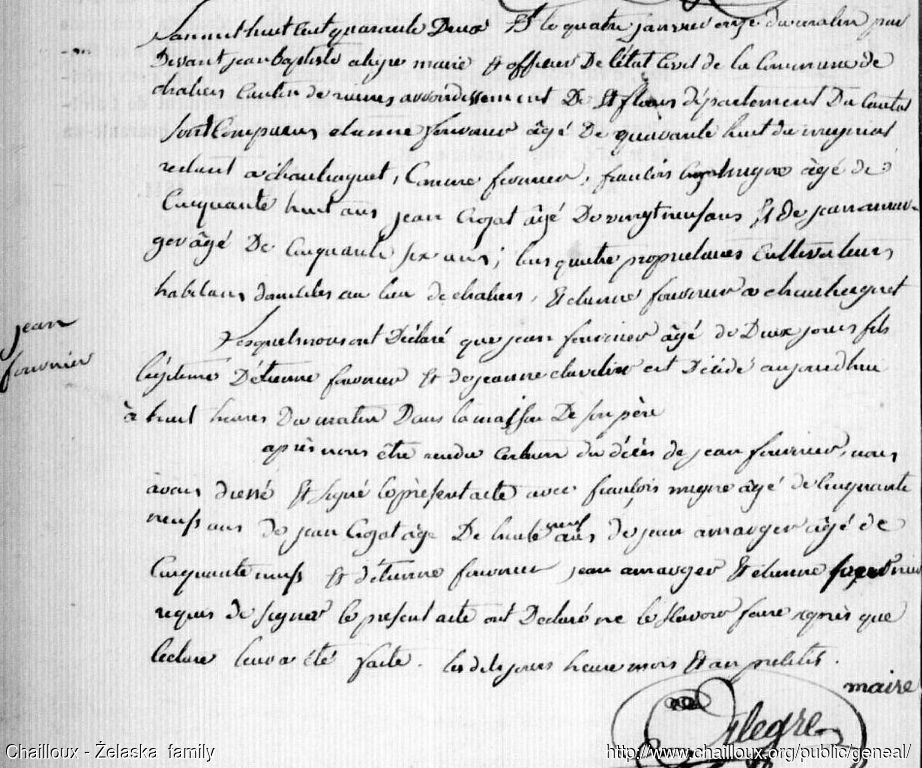 L'an mil huit cent quarante Deux Et le quatre janvier onze du matin par
Devant jean Baptiste alegre marie Et officier De l'état Civil de la Commune de
chaliers Canton de ruines arrondissement De St flour département Du Cantal
sont Comparus etienne fournier âgé De quarante huit du
restant a Chaubaguet, Comme fournier, françois migne âgé de
Cinquante huit ans jean Cigat âgé De vingt neuf ans Et de jean amar-
ger âgé De Cinquante six ans; tous quatre proprietaires Cultivateurs
habitans domiciles au lieu de chaliers, Et etienne fournier a chaubaguet
jean
fournier
Lesquels nous ont Déclaré que jean fournier âgé de Deux jours fils
légitime D'étienne fournier Et de jeanne est Décédé aujourdhui
à huit heures Du matin Dans la maison De son père
après nous être rendu Certain du décès de jean fournier, nous
avons dressé Et signé le présent acte avec françois migne âgé de Cinquante
neuf ans de jean Cigat âgé De neuf ans de jean amarger âgé de
Cinquante neuf Et d'étienne fournier jean amarger Et etienne
requis de signer le present acte ont Declaré ne le savoir faire après que
lecture leur a été faite. les dits jours heure mois Et an predits.
maire
Alegre
Chailloux - Želaska family
http://www.chailloux.org/public/geneal/